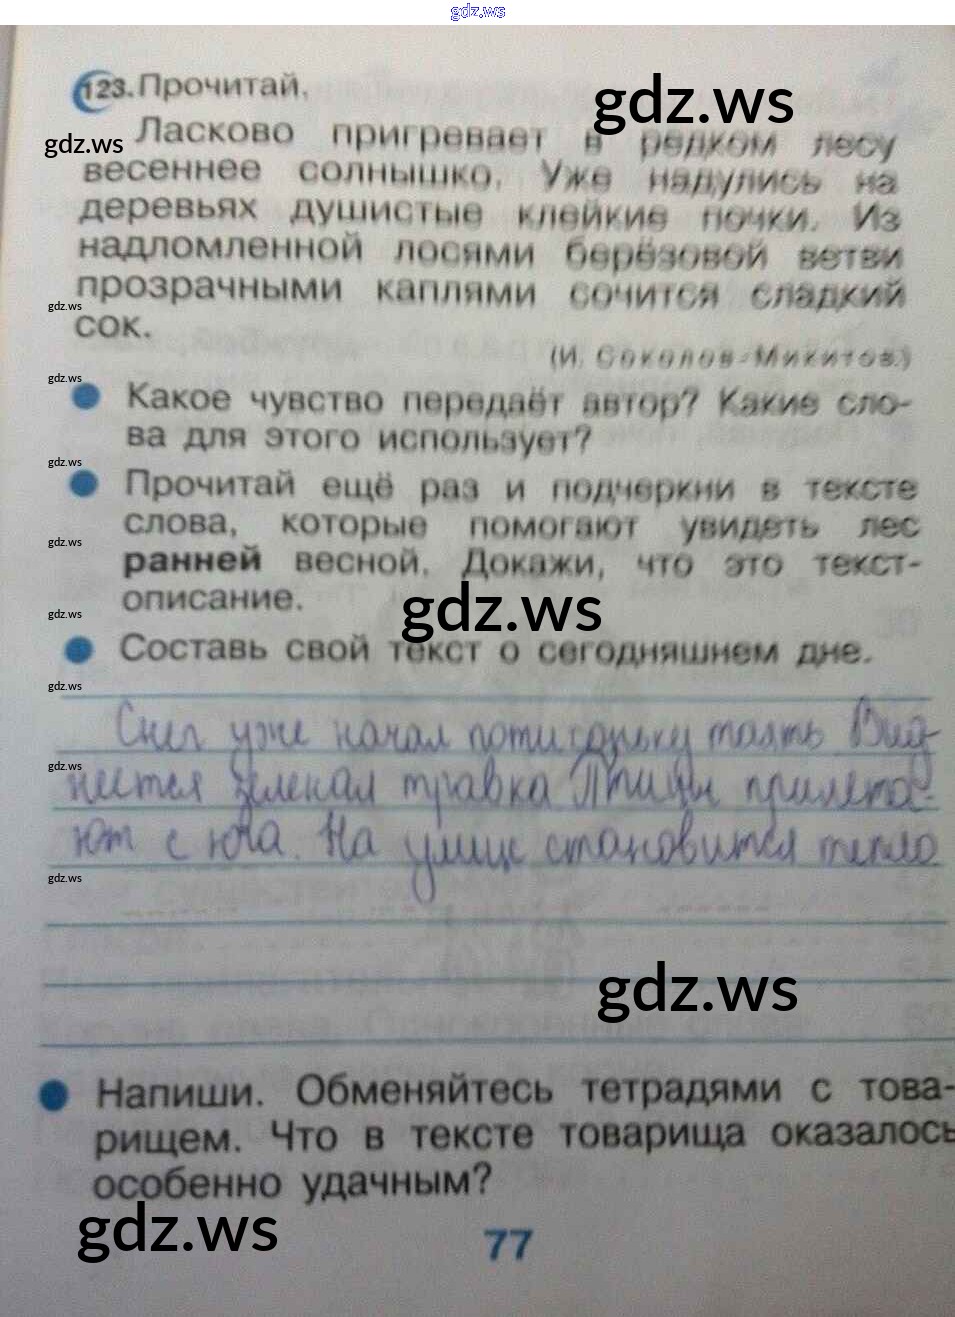 gdz.ws
123. Прочитай.
gdz.ws
Ласково пригревает в редком лесу
gdz.ws
весеннее солнышко. Уже надулись на
деревьях душистые клейкие почки. Из
надломленной лосями берёзовой ветви
прозрачными каплями сочится сладкий
gdz.ws
сок.
(И. Соколов-Микитов.)
gdz.ws
Какое чувство передаёт автор? Какие сло-
ва для этого использует?
gdz.ws
Прочитай ещё раз и подчеркни в тексте
слова, которые помогают увидеть лес
gdz.ws
ранней весной. Докажи, что это текст-
описание.
gdz.ws
gdz.ws
Составь свой текст о сегодняшнем дне.
gdz.ws
Снег уже начал потихоньку таять Вид-
gdz.ws
неется зеленая травка Птицы прилета-
ют с юга. На улице становится тепло
gdz.ws
gdz.ws
Напиши. Обменяйтесь тетрадями с това-
рищем. Что в тексте товарища оказалось
особенно удачным?
gdz.ws
77